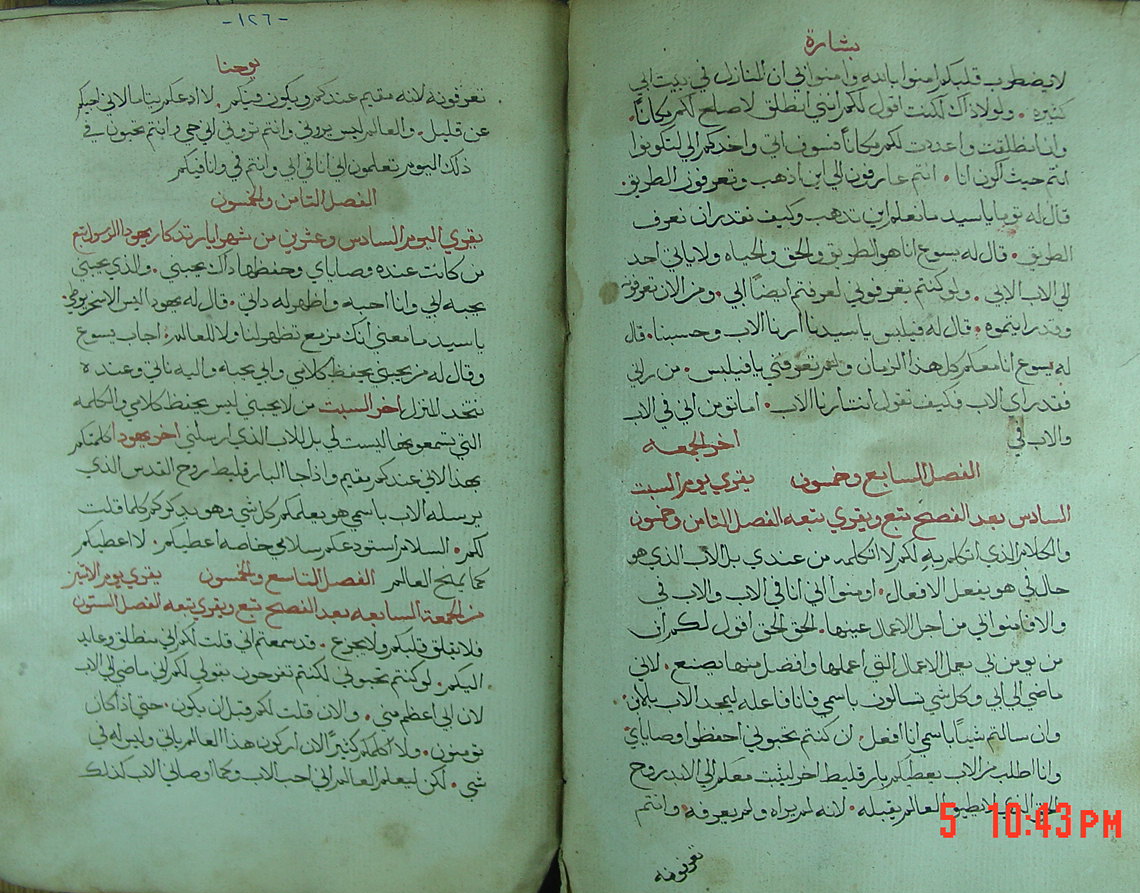 بشارة
لا يضطرب قلبكم امنوا بالله وامنوا بي ان المنازل في بيت ابي
كثيرة ٠ ولولا ذاك لكنت اقول لكم انني انطلق لاصلح لكم مكاناً٠
وان انطلقت واعددت لكم مكاناً فسوف اتي واخدكم الي لتكونوا
انتم حيث اكون انا ٠ انتم عارفون الي اين اذهب وتعرفون الطريق٠
قال له توما يا سيد ما نعلم اين تذهب وكيف نقدر ان نعرف
الطريق ٠ قال له يسوع انا هو الطريق والحق والحياه ولا ياتي احد
الي الاب الا بي ٠ ولو كنتم تعرفوني لعرفتم ايضاً ابي ٠ ومن الان تعرفونه
وقد رايتموه ٠ قال له فيلبس يا سيدنا أرنا الاب وحسبنا٠ قال
له يسوع انا معكم كل هذا الزمان ولم تعرفني يا فيلبس ٠ من رآني
فقد راي الاب فكيف تقول انت ارنا الاب ٠ اما تومن اني في الاب
والاب في
اخر الجمعه
الفصل السابع وخمسون يقري يوم السبت
السادس بعد الفصح تبع ويقري تبعه الفصل الثامن وخمسون
والكلام الذي اتكلم به لكم لا اتكلمه من عندي بل الاب الذي هو
حال في هو يفعل الافعال ٠ اومنوا اني انا في الاب والاب في
والا فامنوا بي من اجل الاعمال عينها٠ الحق الحق اقول لكم ان
من يومن بي يعمل الاعمال التي اعملها وافضل منها يصنع ٠ لاني
ماضي الي ابي وكل شي تسالون باسمي فانا فاعله ليمجد الاب بالابن٠
وان سالتم شيئاً باسمي انا افعل ٠ ان كنتم تحبوني احفظوا وصاياي
وانا اطلب من الاب يعطيكم بارقليط اخر ليثبت معكم الي الابد روح
الحق الذي لا يطيق العالم يقبله ٠ لانه لم يراه ولم يعرفه ٠ وانتم
تعرفونه
-١٢٦-
يوحنا
تعرفونه لانه مقيم عندكم ويكون فيكم ٠ لا ادعكم يتاما لاني اجيكم
عن قليل ٠ والعالم ليس يروني وانتم تروني اني حي وانتم تحيون في
ذلك اليوم تعلمون اني انا في ابي وانتم في وانا فيكم
الفصل الثامن والخمسون
يقري اليوم السادس وعشرين من شهر ايار تدكار يهودا الرسول تبع
من كانت عنده وصاياي وحفظها ذاك يحبني ٠ والذي يحبني
يحبه ابي وانا احبه واظهر له ذاتي ٠ قال له يهودا ليس الاسخريوطي٠
يا سيد ما معني أنك مزمع تظهر لنا ولا للعالم٠ اجاب يسوع
وقال له من يحبني يحفظ كلامي وابي يحبه واليه ناتي وعنده
نتخد المنزل اخر السبت من لا يحبني ليس يحفظ كلامي والكلمه
التي تسمعوها ليست لي بل للاب الذي ارسلني اخر يهودا كلمتكم
بهذا لاني عندكم مقيم واذا جا البارقليط روح القدس الذي
يرسله الاب باسمي هو يعلمكم كل شي وهو يدكركم كلما قلت
لكم ٠ السلام استودعكم سلامي خاصه اعطيكم ٠ لا اعطيكم
كما يمنح العالم الفصل التاسع والخمسون يقري يوم الاتنين
من الجمعة السابعه بعد الفصح تبع ويقري تبعه الفصل الستون
فلا تقلق قلبكم ولا يجزع ٠ قد سمعتم اني قلت لكم اني منطلق وعايد
اليكم٠ لو كنتم تحبوني لكنتم تفرحون بقولي لكم اني ماضي الي الاب
لان ابي اعظم مني ٠ والان قلت لكم قبل ان يكون ٠ حتي اذا كان
تومنون ٠ ولا اكلمكم كثيراً الان اركون هذا العالم ياتي وليس له في
شي ٠ لكن ليعلم العالم اني احب الاب وكما اوصاني الاب كذلك
5 10:43 PM